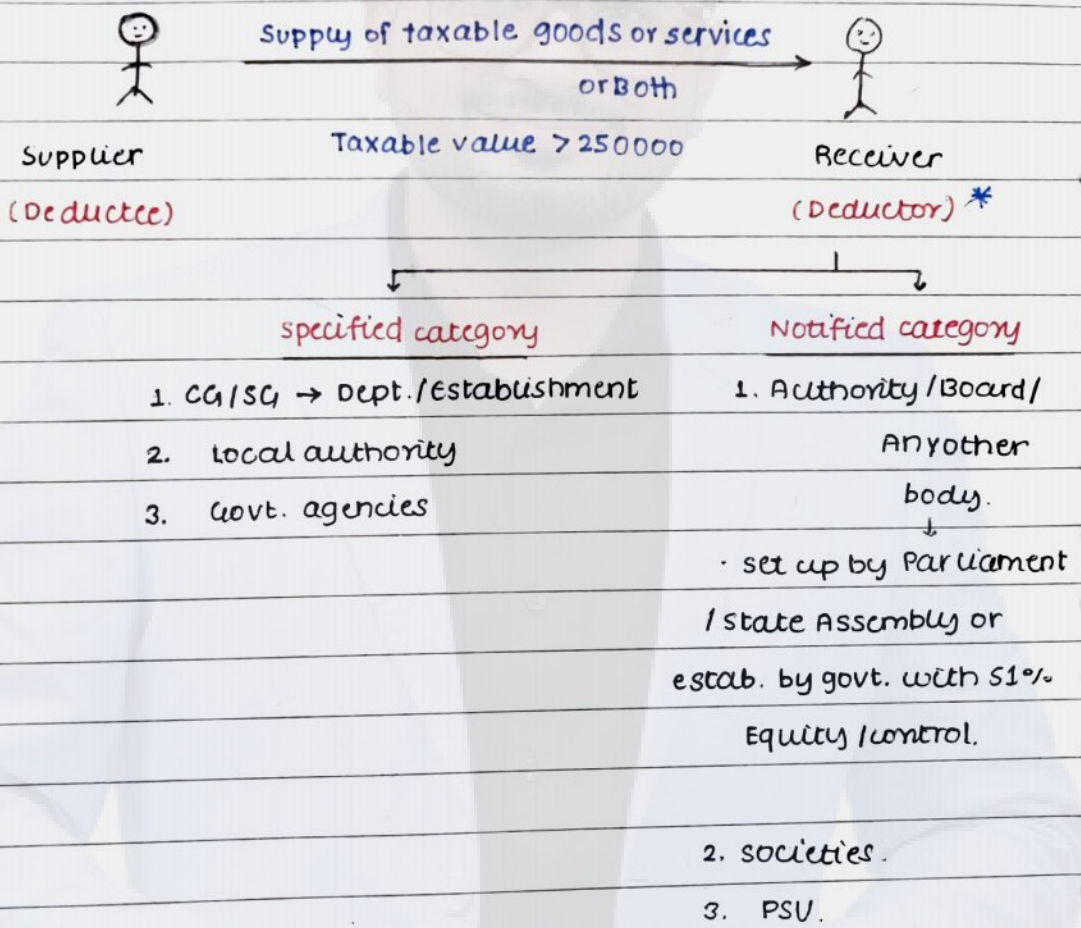 Supply of taxable goods or services
or Both
Taxable value > 250000
Supplier
Receiver
(Deductee)
(Deductor) *
Specified category
Notified category
1. CG/SG → Dept./Establishment
2. Local authority
3. Govt. agencies
1. Authority/Board/
Anyother
body.
↓
· set up by Parliament
/ State Assembly or
estab. by govt. with 51%
Equity/control.
2. Societies.
3. PSU.